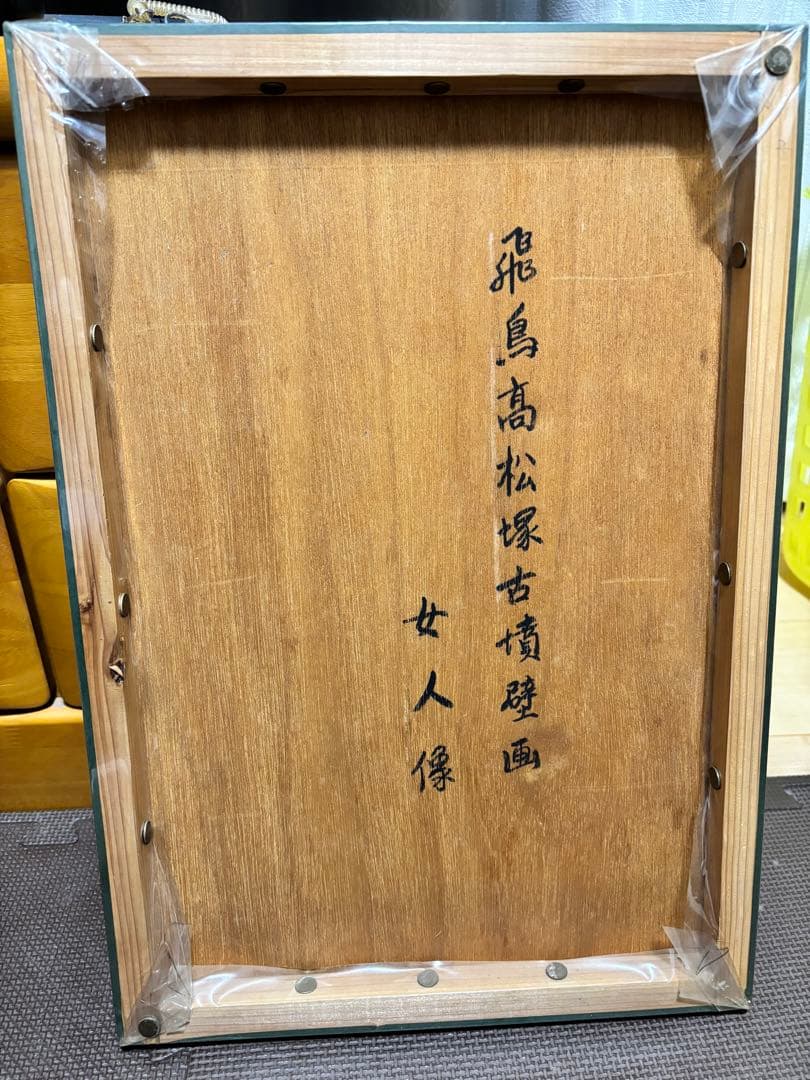 飛鳥高松塚古墳壁画
女人像